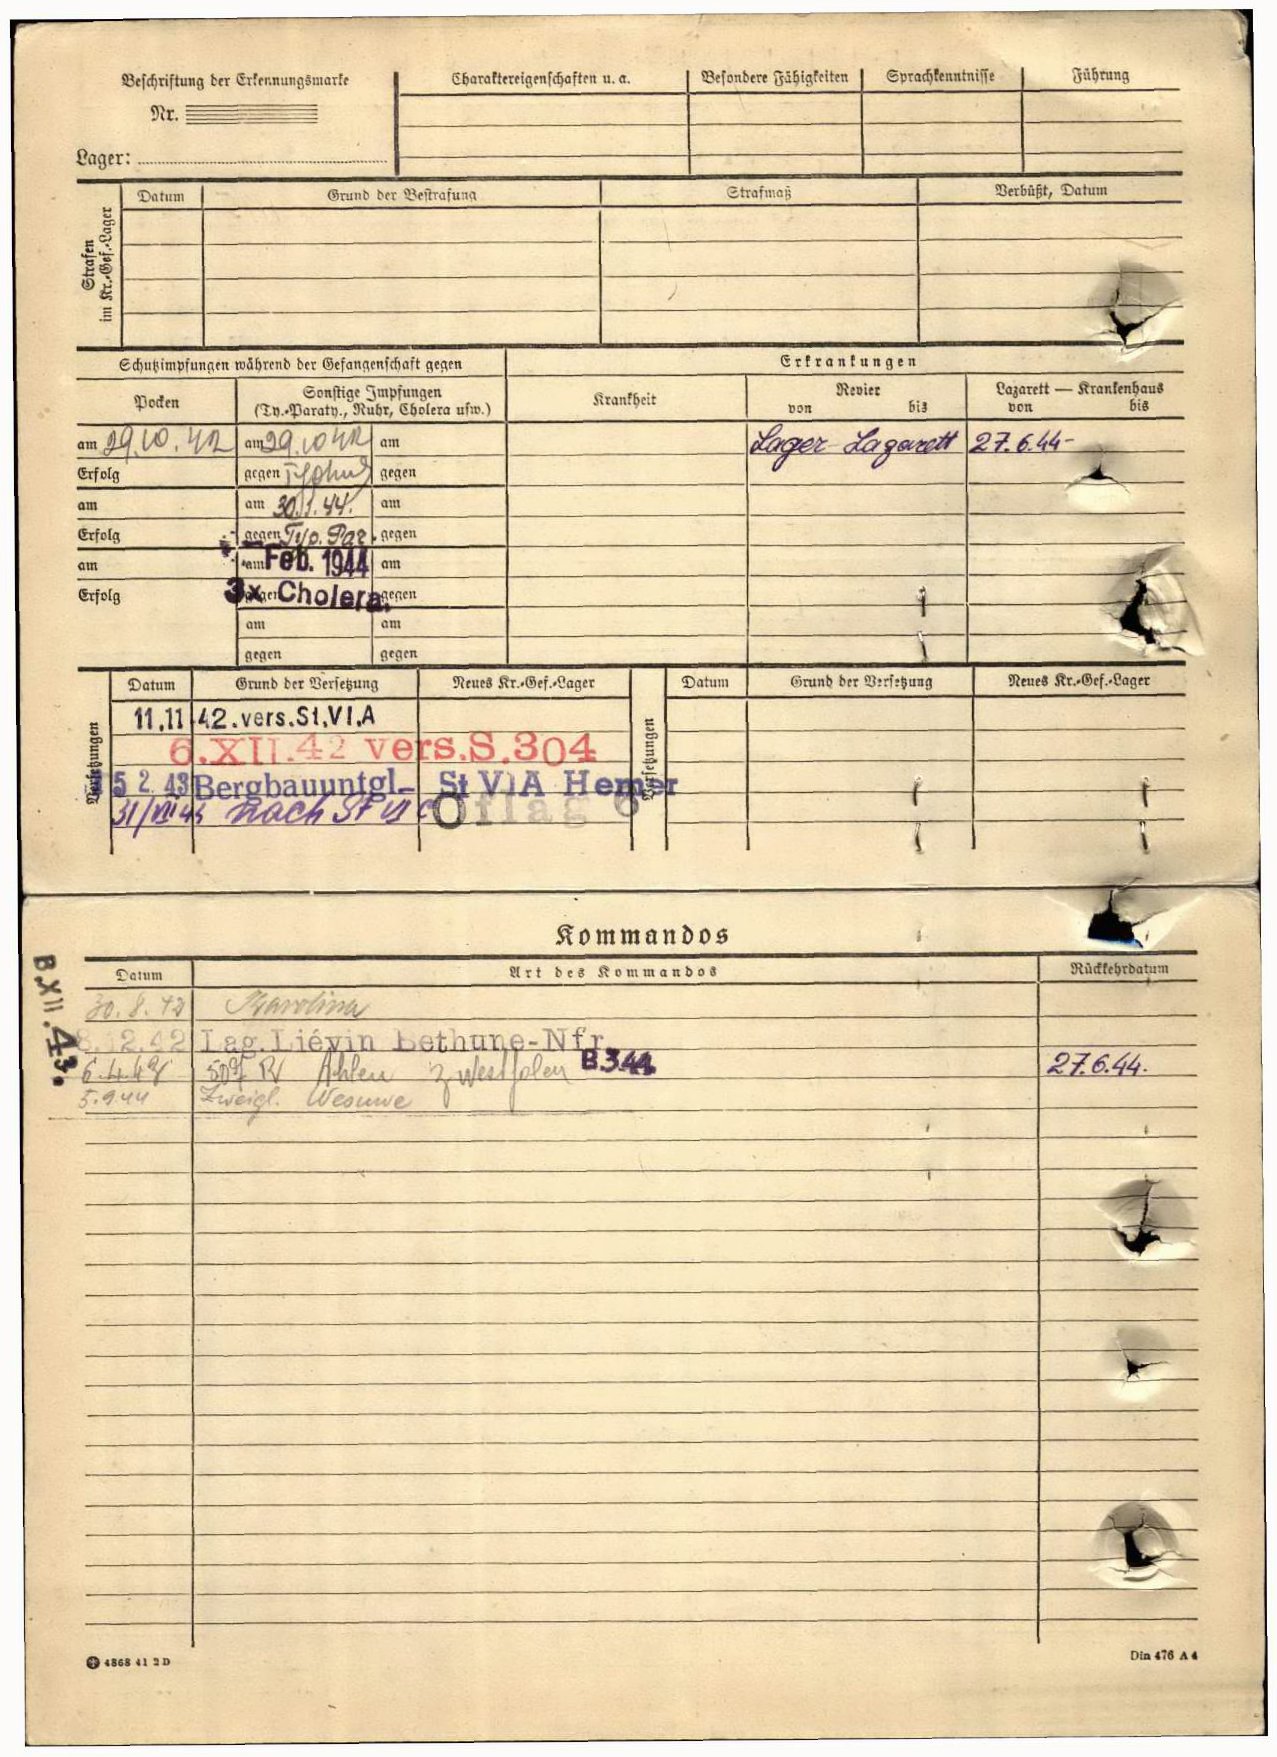 Beschriftung der Erkennungsmarke
Nr.
Lager:
Charaktereigenschaften u. a.
Besondere Fähigkeiten
Sprachkenntnisse
Führung
Strafen im Kr.-Gef.-Lager
Datum
Grund der Bestrafung
Strafmaß
Verbüßt, Datum
Schutzimpfungen während der Gefangenschaft gegen
Erkrankungen
Pocken
Sonstige Impfungen
(Ty.-Paraty., Ruhr, Cholera usw.)
Krankheit
Revier
von bis
Lazarett — Krankenhaus
von bis
am 29.10.42 am 29.10 42 am Lager-Lazarett 27.6.44-
Erfolg gegen Typhus gegen
am am 30.1.44. am
Erfolg gegen Typ. Par. gegen
am am Feb. 1944 am
Erfolg gegen 3x Cholera. gegen
am am
gegen gegen
Versetzungen
Datum Grund der Versetzung Neues Kr.-Gef.-Lager
Versetzungen
Datum Grund der Versetzung Neues Kr.-Gef.-Lager
11.11 42.vers.St.VI.A
6.XII.42 vers.S.304
5 2. 43 Bergbauuntgl- St VIA Hemer
nach St VI C Oflag 6
Kommandos
B.XII.43.
Datum Art des Kommandos Rückkehrdatum
30.8.42 Karolina
12.42 Lag. Liévin Bethune-Nfr.
6.4.4 509 R Ahlen Westfalen B.344 27.6.44.
5.9.44 Zweigl. Wesuwe
4868 41 2 D
Din 476 A 4